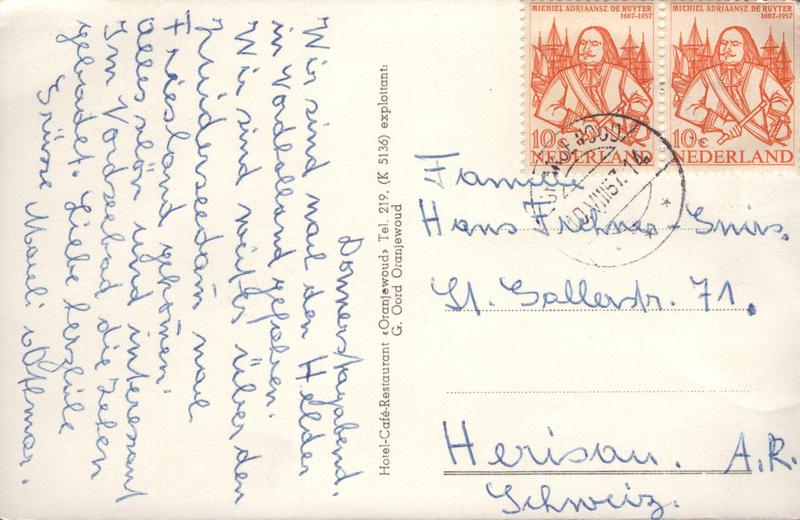 Donnerstagabend.
Wir sind nach den Helder
in Nordholland gefahren.
Wir sind weiter über den
Zuiderseedam nach
Friesland gekommen.
Alles schön und interessant
Im Nordseebad die Zehen
gebadet. Liebe herzliche
Grüsse Maeli & Othmar.
Hotel-Café-Restaurant «Oranjewoud» Tel. 219. (K 5136) exploitant:
G. Oord Oranjewoud
MICHIEL ADRIAANSZ. DE RUYTER
1607-1957
10c
NEDERLAND
MICHIEL ADRIAANSZ. DE RUYTER
1607-1957
10c
NEDERLAND
VIII 57. 14
Familie
Hans
St. Gallerstr. 71.
Herisau. A.R.
Schweiz.